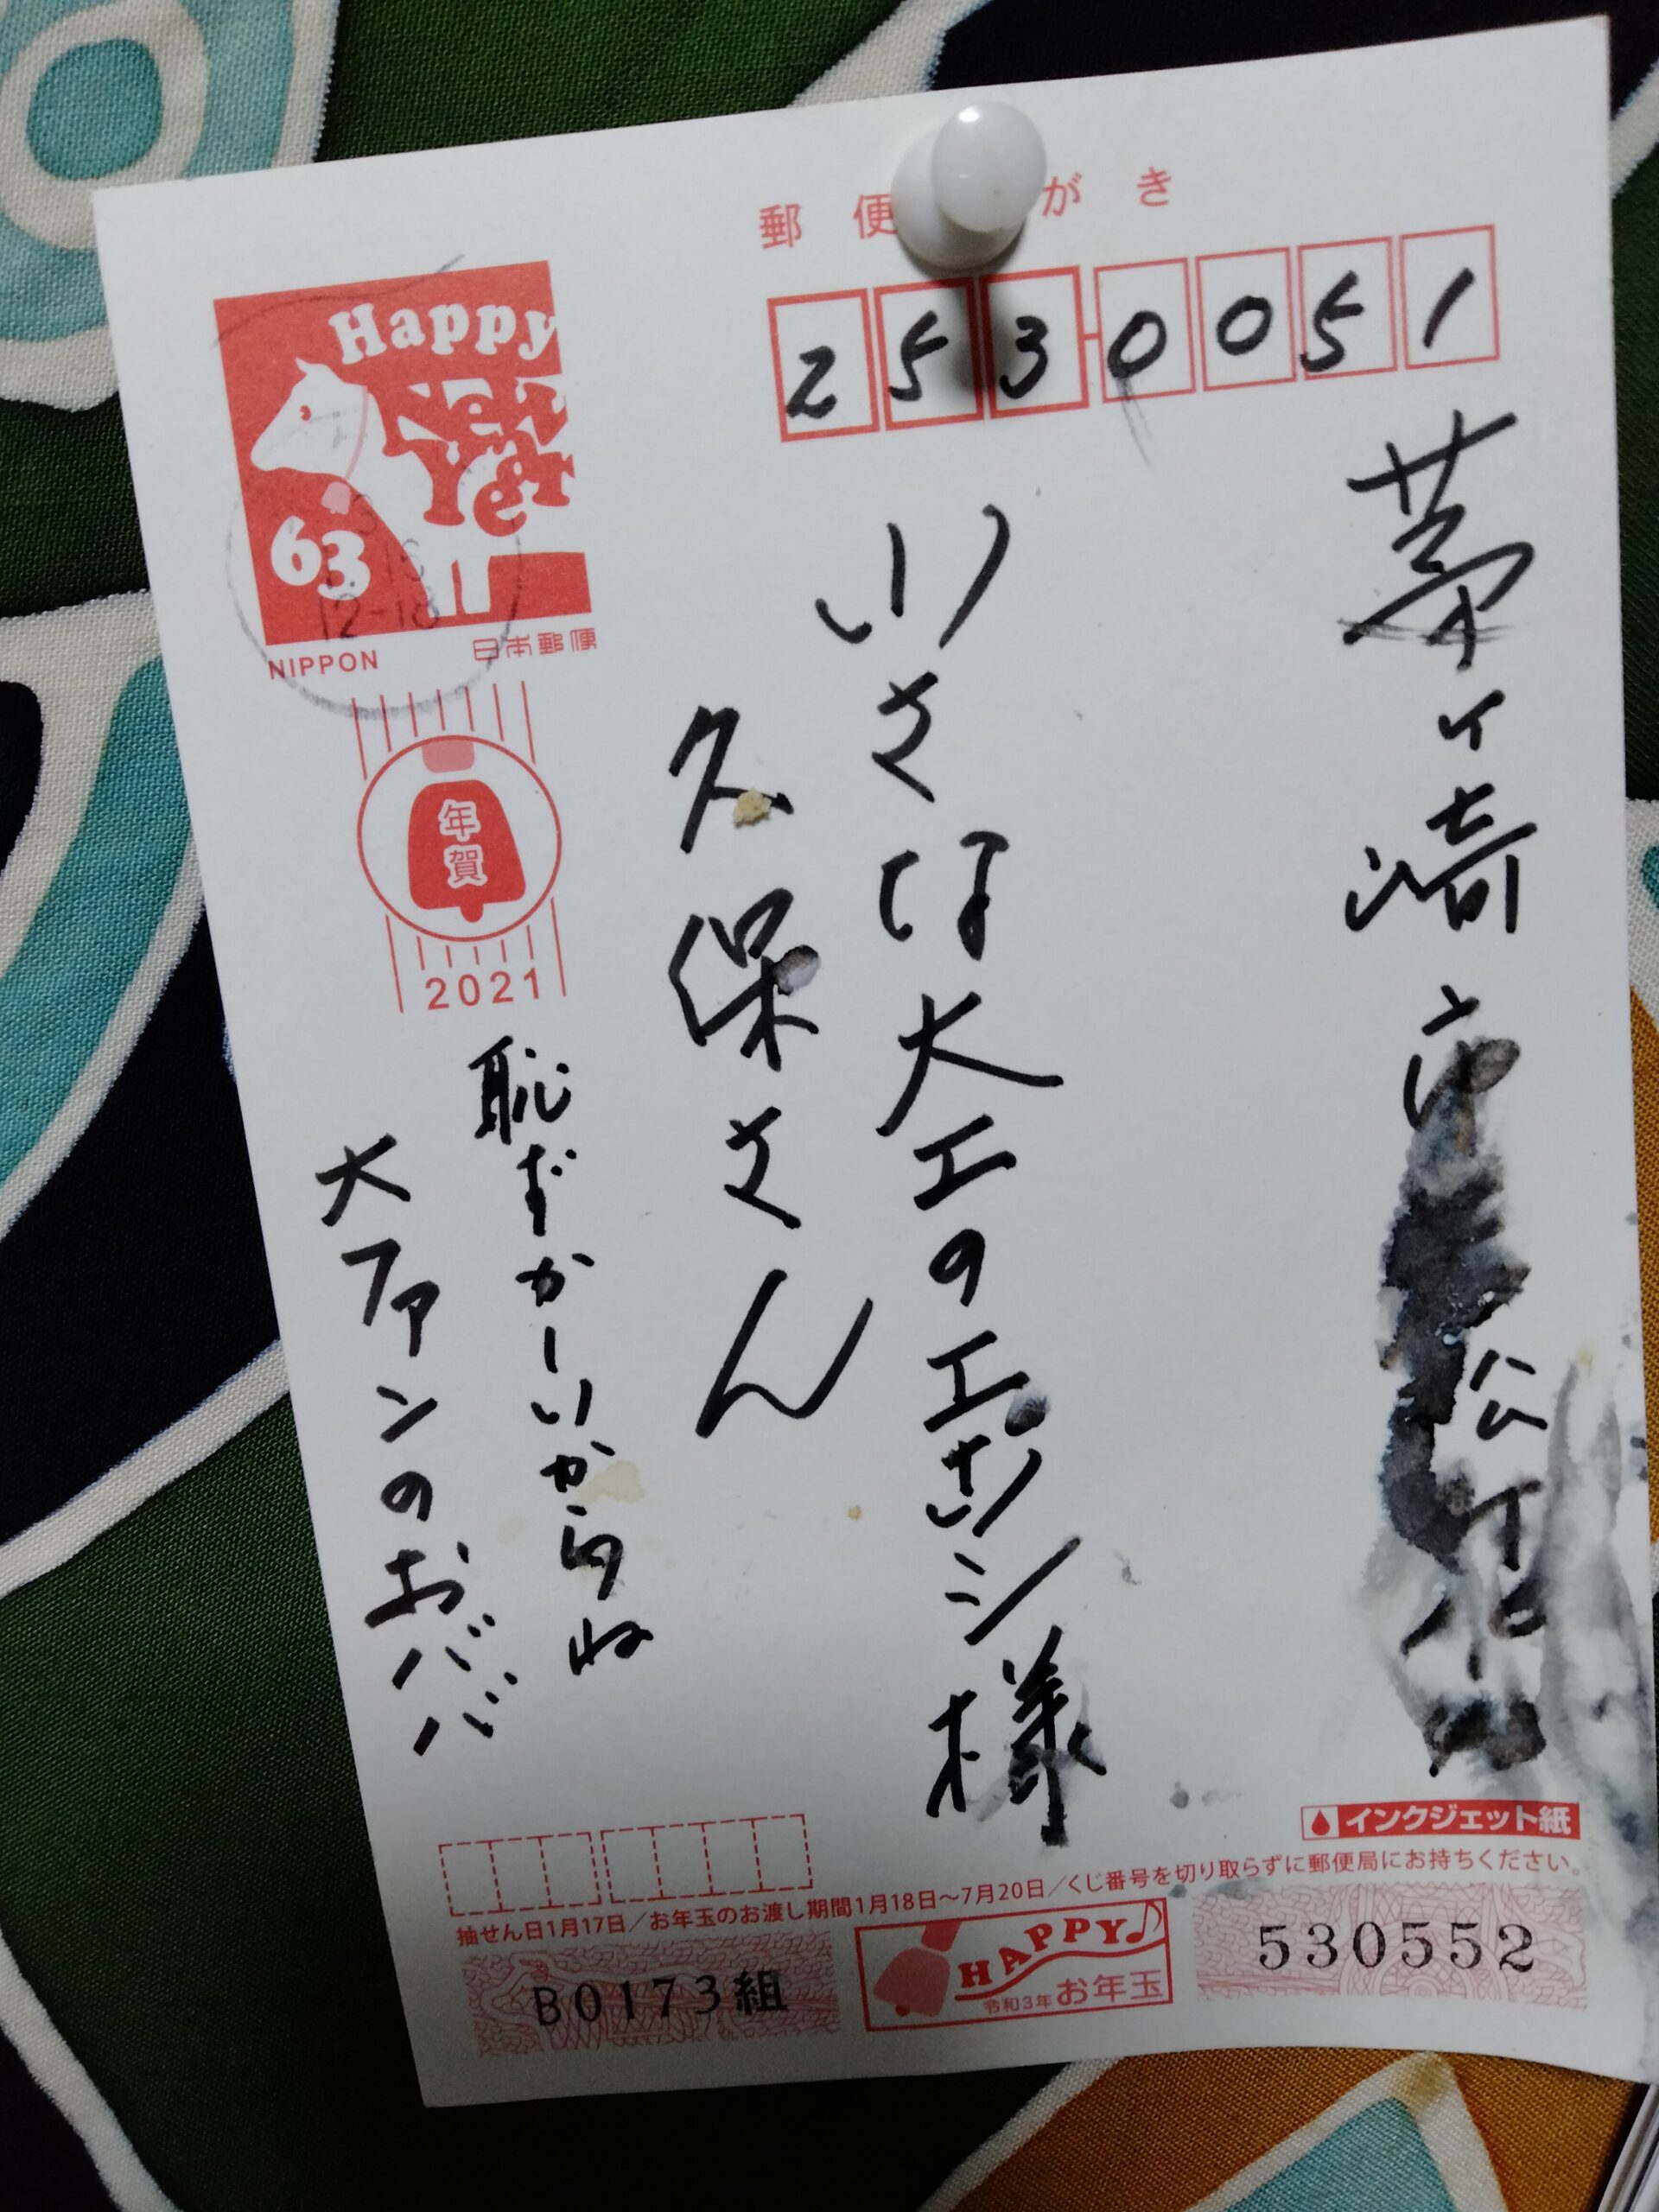 郵便 がき
2530051
茅ヶ崎市
小さな大工のエホン様
久保さん
恥ずかしいからね
大ファンのおババ
Happy
New
Year
63
NIPPON 日本郵便
12-18
年賀
2021
インクジェット紙
抽せん日1月17日/お年玉のお渡し期間1月18日～7月20日/くじ番号を切り取らずに郵便局にお持ちください。
B0173組
HAPPY♪
令和3年お年玉
530552